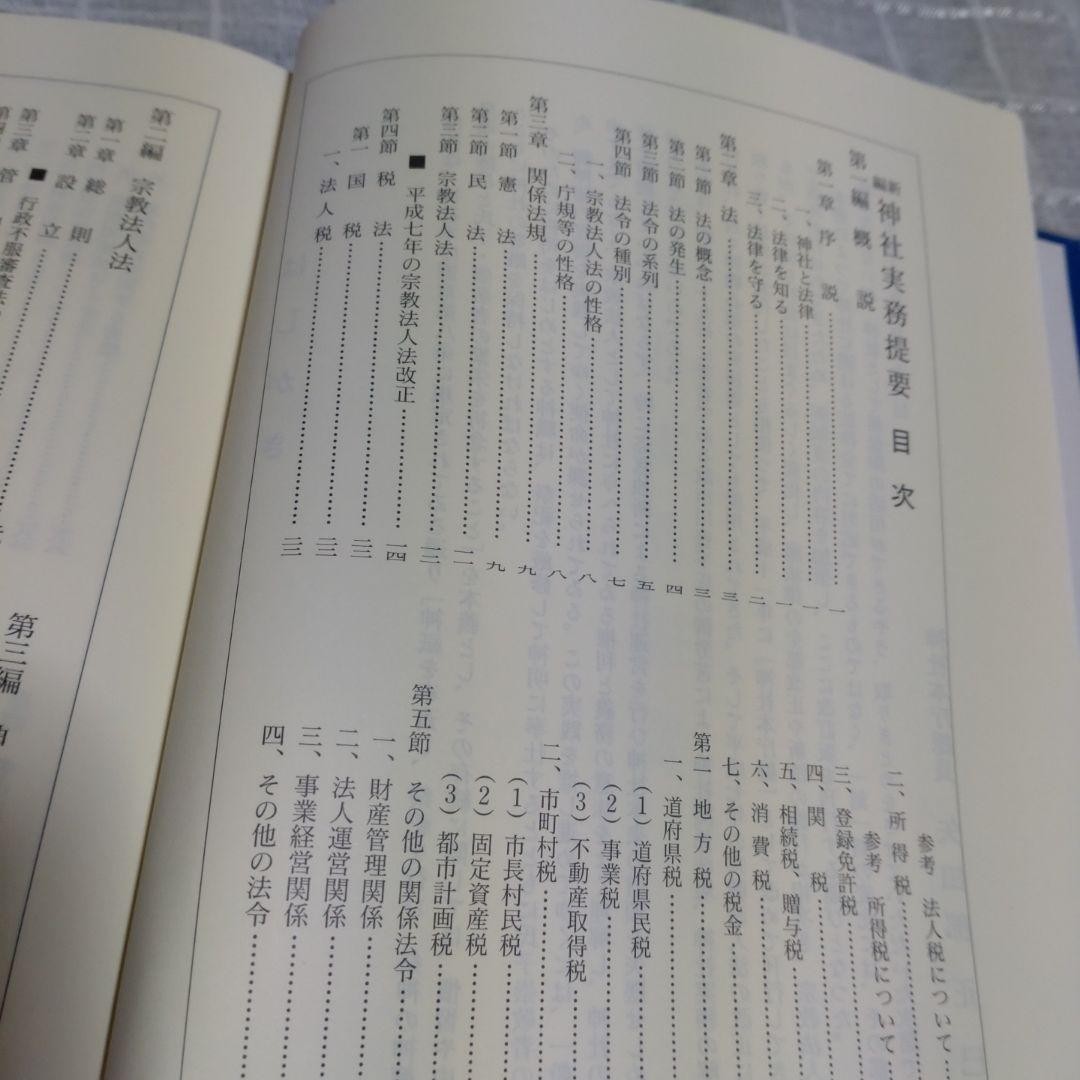 新編 神社実務提要 目次
第一編 概説
第一章 序説……一
一、神社と法律……一
二、法律を知る……一
三、法律を守る……二
第二章 法……三
第一節 法の概念……三
第二節 法の発生……四
第三節 法令の系列……五
第四節 法令の種別……七
一、宗教法人法の性格……八
二、庁規等の性格……八
第三章 関係法規……九
第一節 憲法……九
第二節 民法……一一
第三節 宗教法人法……
■ 平成七年の宗教法人法改正……一四
第四節 税法……
第一 国税……
一、法人税……
参考 法人税について……
二、所得税……
参考 所得税について……
三、登録免許税……
四、関税……
五、相続税、贈与税……
六、消費税……
七、その他の税金……
第二 地方税……
一、道府県税……
(1) 道府県民税……
(2) 事業税……
(3) 不動産取得税……
二、市町村税……
(1) 市長村民税……
(2) 固定資産税……
(3) 都市計画税……
第五節 その他の関係法令……
一、財産管理関係……
二、法人運営関係……
三、事業経営関係……
四、その他の法令……
第二編 宗教法人法
第一章 総則……
第二章 設立……
■ 行政不服審査法
第三章 管
第三編